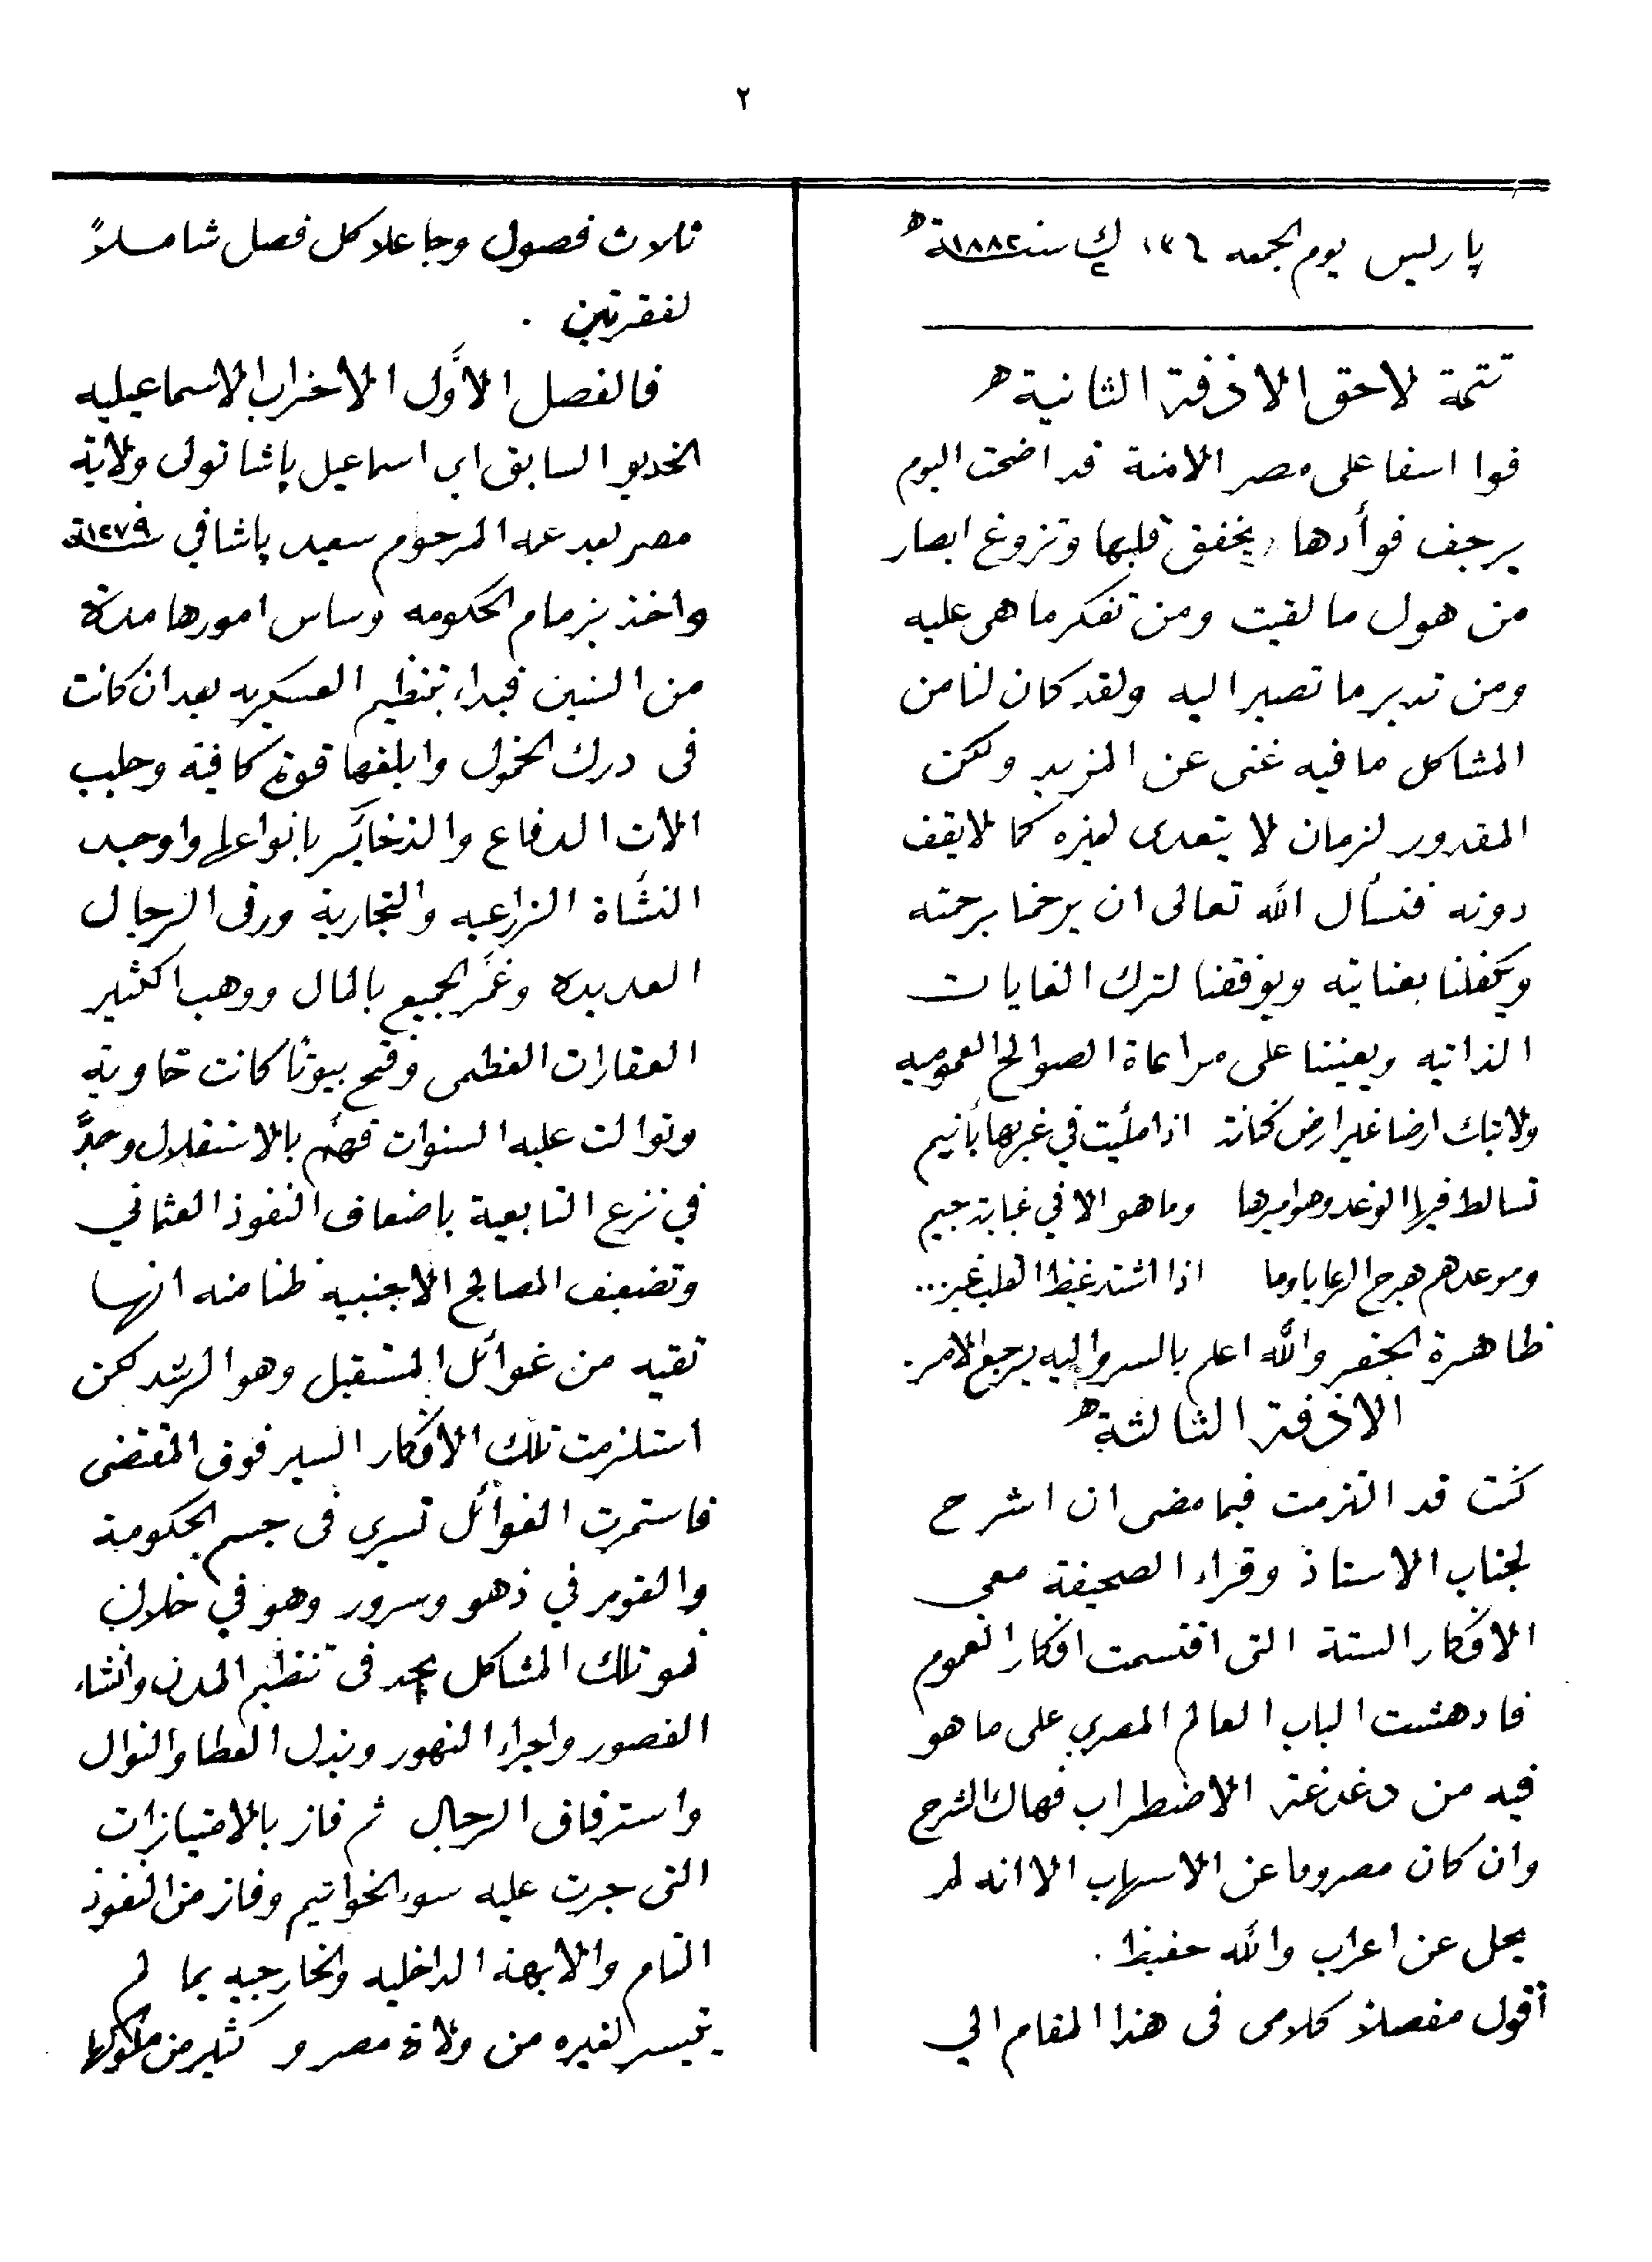 ٢
پاريس يوم الجمعه ١٣٦ ك٢ سنة ١٨٨٢
تتمة لاحق الاذفة الثانية
فوا اسفا على مصر الامنة قد اضحت اليوم
يرجف فوأدها ويخفق قلبها وتزوغ ابصار
من هول ما لقيت ومن تفكر ما هى عليه
ومن تدبر ما تصير اليه ولقد كان لنا من
المشاكل ما فيه غنى عن المزيد ولكن
المقدور لزمان لا يتعدى لغيره كما لا يقف
دونه فنسأل الله تعالى ان يرحمنا برحمته
ويكفلنا بعنايته ويوفقنا لترك الغايات
الذاتيه ويعيننا على مراعاة الصوالح العموميه
ولا تبك ارضا غير ارض كنانة اذا ملئت في غربها بأنيم
تسالط فيها الوغد وهو اميرها وما هو الا في غيابة جيم
وموعدهم هرج الرعايا وما اذا اشتد غيظ القلب غير...
ظاهرة الجفر والله اعلم بالسر واليه يرجع الامر.
الاذفة الثالثة
كنت قد التزمت فيما مضى ان اشرح
لجناب الاستاذ وقراء الصحيفة معى
الافكار الستة التى اقتسمت افكار العموم
فادهشت الباب العالم المصري على ما هو
فيه من دغدغة الاضطراب فهاك الشرح
وان كان مصروما عن الاسهاب الا انه لم
يحل عن اعراب والله حفيظ.
أقول مفصلاً كلامى فى هذا المقام الي
ثلاث فصول وجاعلا كل فصل شاملاً
لفقرتين.
فالفصل الأوّل الاخراب الاسماعيليه
الخديو السابق اى اسماعيل پاشا تولى ولاية
مصر بعد عمه المرحوم سعيد پاشا في سنة ١٢٧٩
واخذ بزمام الحكومه وساس امورها مدة
من السنين فبداء بتنظيم العسكريه بعد ان كانت
فى درك الخمول وابلغها قوة كافية وجلب
الات الدفاع والذخائر بانواعها واوجد
النشأة الزراعيه والتجارية ورقى الرجال
العديده وغمَّر الجميع بالمال ووهب اكثير
العقارات العظمى وفتح بيوتًا كانت خاوية
وتوالت عليه السنوات فهمَّ بالاستقلال وجدَّ
في نزع التابعية باضعاف النفوذ العثماني
وتضعيف المصالح الاجنبيه ظنا منه انها
تقيه من غوائل المستقبل وهو الرشد لكن
استلزمت تلك الافكار السير فوق المقتضى
فاستمرت الغوائل تسري فى جسم الحكومة
والقوم في زهو وسرور وهو في خلال
نمو تلك المشاكل يجد فى تنظيم المدن وانشاء
القصور واجراء النهور وبذل العطا والنوال
واسترقاق الرجال ثم فاز بالامتيازات
التى جرت عليه سوء الخواتيم وفاز من النفوذ
التام والابهة الداخليه والخارجيه بما لم
يتيسر لغيره من ولاة مصر و كثير من ملوكها